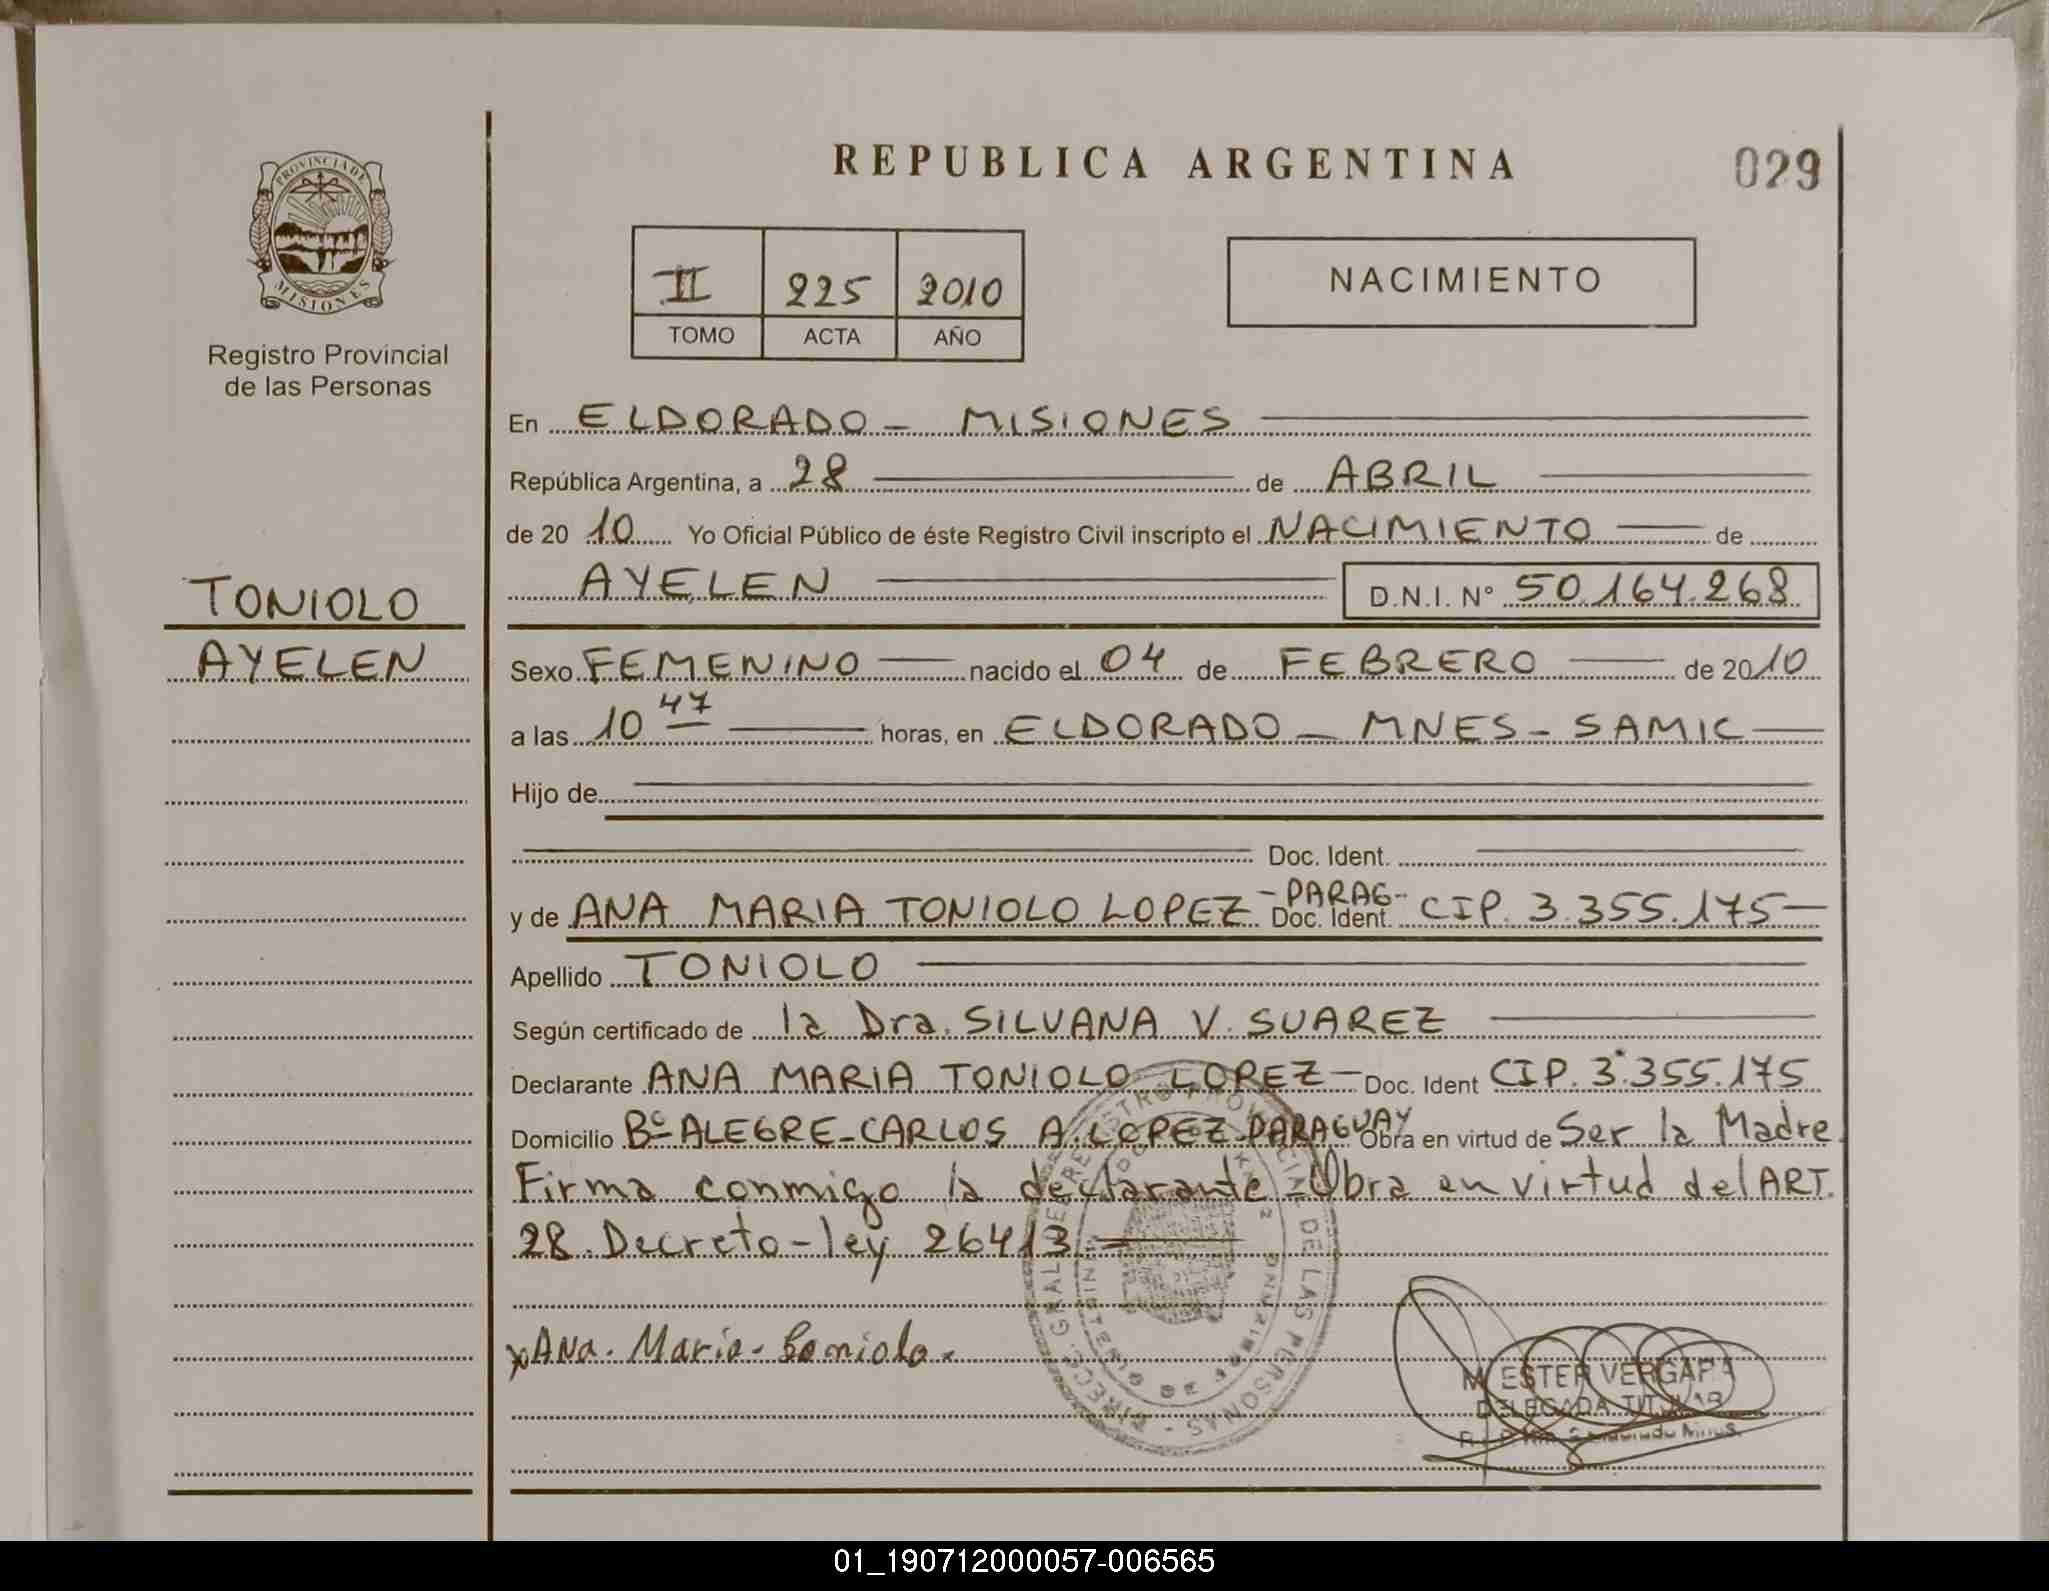 REPUBLICA ARGENTINA
029
PROVINCIA DE
MISIONES
Registro Provincial
de las Personas
II 225 2010
TOMO ACTA AÑO
NACIMIENTO
En ELDORADO - MISIONES
República Argentina, a 28 de ABRIL
de 2010 Yo Oficial Público de éste Registro Civil inscripto el NACIMIENTO de
AYELEN D.N.I. N° 50.164.268
TONIOLO
AYELEN
Sexo FEMENINO nacido el 04 de FEBRERO de 2010
a las 10 47 horas, en ELDORADO - MNES - SAMIC
Hijo de
Doc. Ident.
y de ANA MARIA TONIOLO LOPEZ - PARAG- Doc. Ident. CIP. 3.355.175
Apellido TONIOLO
Según certificado de la Dra. SILVANA V. SUAREZ
Declarante ANA MARIA TONIOLO LOPEZ - Doc. Ident CIP. 3.355.175
Domicilio Bº ALEGRE - CARLOS A. LOPEZ PARAGUAY Obra en virtud de Ser la Madre
Firma conmigo la declarante - Obra en virtud del ART.
28. Decreto - ley 26413 -
x Ana. Maria - Toniolo.
DIREC. GRAL. DE REGISTRO PROVINCIAL DE LAS PERSONAS
M. ESTER VERGARA
DELEGADA TITULAR
01_190712000057-006565